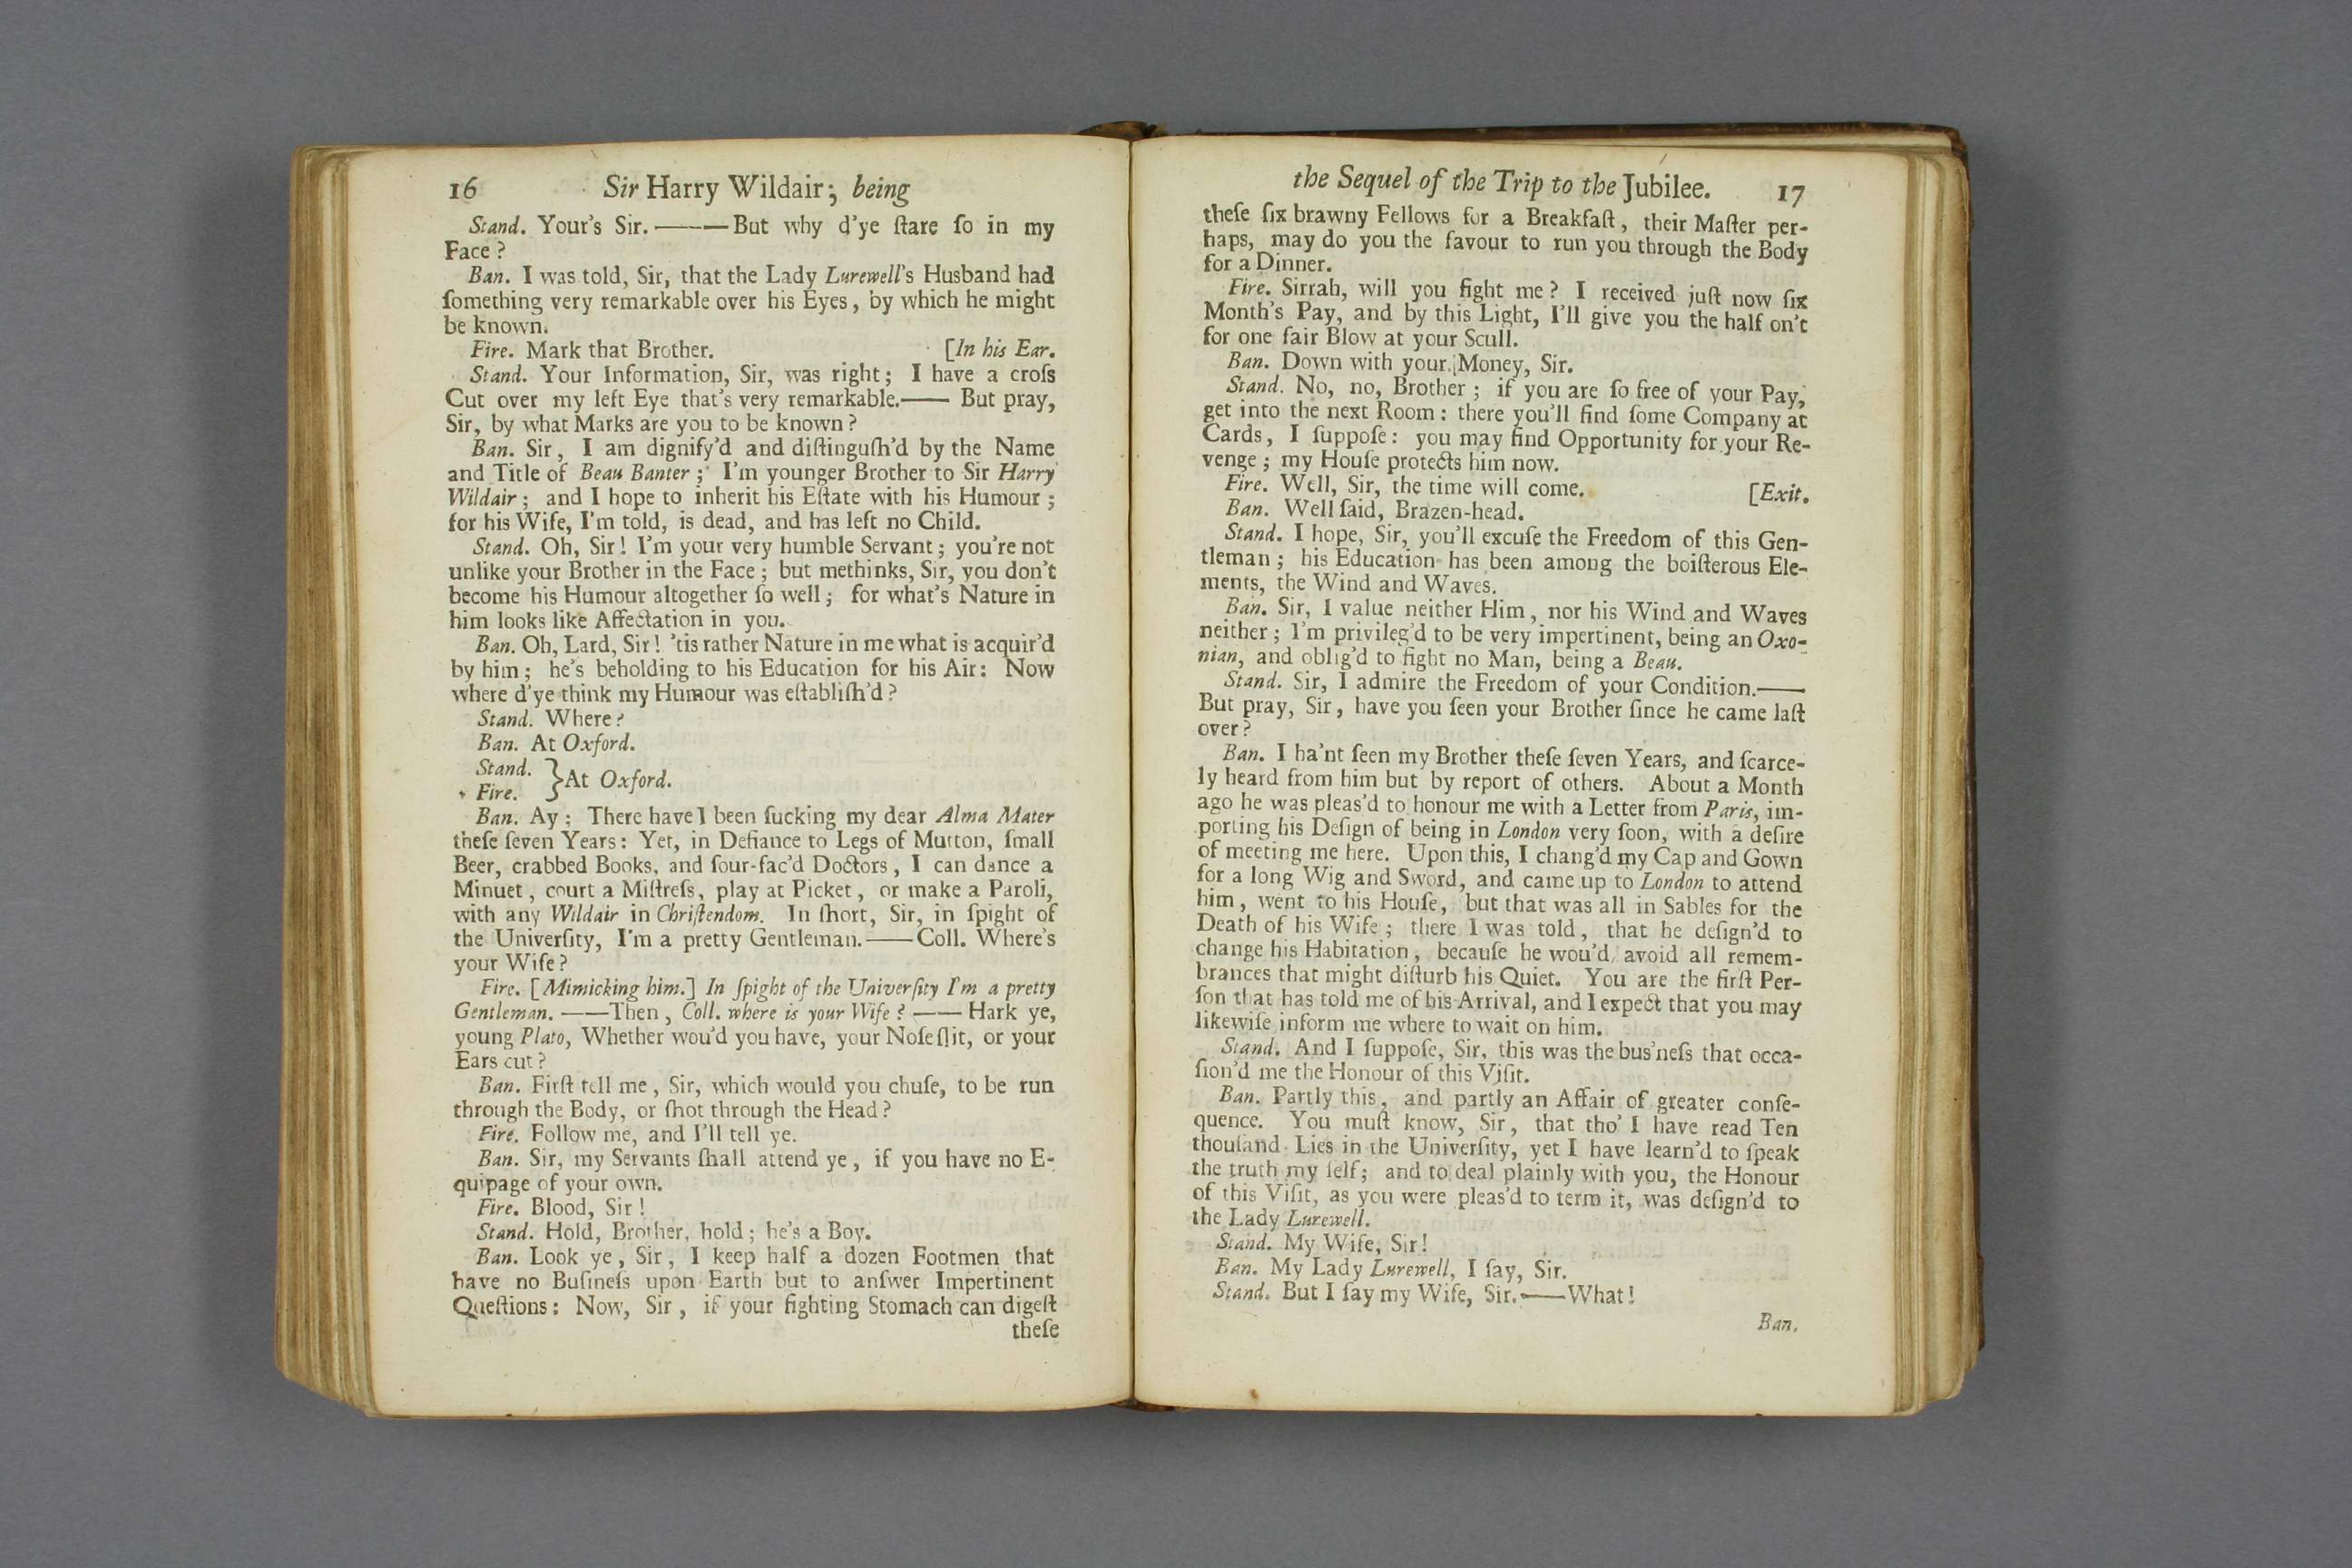 16 Sir Harry Wildair; being
Stand. Your's Sir. ——— But why d'ye ſtare ſo in my
Face?
Ban. I was told, Sir, that the Lady Lurewell's Husband had
ſomething very remarkable over his Eyes, by which he might
be known.
Fire. Mark that Brother. [In his Ear.
Stand. Your Information, Sir, was right; I have a croſs
Cut over my left Eye that's very remarkable.—— But pray,
Sir, by what Marks are you to be known?
Ban. Sir, I am dignify'd and diſtinguſh'd by the Name
and Title of Beau Banter; I'm younger Brother to Sir Harry
Wildair; and I hope to inherit his Eſtate with his Humour;
for his Wife, I'm told, is dead, and has left no Child.
Stand. Oh, Sir! I'm your very humble Servant; you're not
unlike your Brother in the Face; but methinks, Sir, you don't
become his Humour altogether ſo well; for what's Nature in
him looks like Affectation in you.
Ban. Oh, Lard, Sir! 'tis rather Nature in me what is acquir'd
by him; he's beholding to his Education for his Air: Now
where d'ye think my Humour was eſtabliſh'd?
Stand. Where?
Ban. At Oxford.
Stand. } At Oxford.
Fire.
Ban. Ay: There have I been ſucking my dear Alma Mater
theſe ſeven Years: Yet, in Defiance to Legs of Mutton, ſmall
Beer, crabbed Books, and ſour-fac'd Doctors, I can dance a
Minuet, court a Miſtreſs, play at Picket, or make a Paroli,
with any Wildair in Chriſtendom. In ſhort, Sir, in ſpight of
the Univerſity, I'm a pretty Gentleman.——Coll. Where's
your Wife?
Fire. [Mimicking him.] In ſpight of the Univerſity I'm a pretty
Gentleman. ——Then, Coll. where is your Wife? —— Hark ye,
young Plato, Whether wou'd you have, your Noſe ſlit, or your
Ears cut?
Ban. Firſt tell me, Sir, which would you chuſe, to be run
through the Body, or ſhot through the Head?
Fire. Follow me, and I'll tell ye.
Ban. Sir, my Servants ſhall attend ye, if you have no E-
quipage of your own.
Fire. Blood, Sir!
Stand. Hold, Brother, hold; he's a Boy.
Ban. Look ye, Sir, I keep half a dozen Footmen that
have no Buſineſs upon Earth but to anſwer Impertinent
Queſtions: Now, Sir, if your fighting Stomach can digeſt
theſe
the Sequel of the Trip to the Jubilee. 17
theſe ſix brawny Fellows for a Breakfaſt, their Maſter per-
haps, may do you the favour to run you through the Body
for a Dinner.
Fire. Sirrah, will you fight me? I received juſt now ſix
Month's Pay, and by this Light, I'll give you the half on't
for one fair Blow at your Scull.
Ban. Down with your Money, Sir.
Stand. No, no, Brother; if you are ſo free of your Pay,
get into the next Room: there you'll find ſome Company at
Cards, I ſuppoſe: you may find Opportunity for your Re-
venge; my Houſe protects him now.
Fire. Well, Sir, the time will come. [Exit.
Ban. Well ſaid, Brazen-head.
Stand. I hope, Sir, you'll excuſe the Freedom of this Gen-
tleman; his Education has been among the boiſterous Ele-
ments, the Wind and Waves.
Ban. Sir, I value neither Him, nor his Wind and Waves
neither; I'm privileg'd to be very impertinent, being an Oxo-
nian, and oblig'd to fight no Man, being a Beau.
Stand. Sir, I admire the Freedom of your Condition.——
But pray, Sir, have you ſeen your Brother ſince he came laſt
over?
Ban. I ha'nt ſeen my Brother theſe ſeven Years, and ſcarce-
ly heard from him but by report of others. About a Month
ago he was pleas'd to honour me with a Letter from Paris, im-
porting his Deſign of being in London very ſoon, with a deſire
of meeting me here. Upon this, I chang'd my Cap and Gown
for a long Wig and Sword, and came up to London to attend
him, went to his Houſe, but that was all in Sables for the
Death of his Wife; there I was told, that he deſign'd to
change his Habitation, becauſe he wou'd avoid all remem-
brances that might diſturb his Quiet. You are the firſt Per-
ſon that has told me of his Arrival, and I expect that you may
likewiſe inform me where to wait on him.
Stand. And I ſuppoſe, Sir, this was the bus'neſs that occa-
ſion'd me the Honour of this Viſit.
Ban. Partly this, and partly an Affair of greater conſe-
quence. You muſt know, Sir, that tho' I have read Ten
thouſand Lies in the Univerſity, yet I have learn'd to ſpeak
the truth my ſelf; and to deal plainly with you, the Honour
of this Viſit, as you were pleas'd to term it, was deſign'd to
the Lady Lurewell.
Stand. My Wife, Sir!
Ban. My Lady Lurewell, I ſay, Sir.
Stand. But I ſay my Wife, Sir.——What!
Ban.